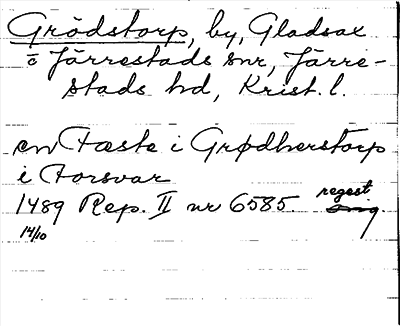 Grödstorp, by, Gladsax
o Järrestads snr, Järre-
stads hd, Krist. l.
en Fæste i Grødherstorp
i Forsvar
1489 Rep. II nr 6585 regest
14/10